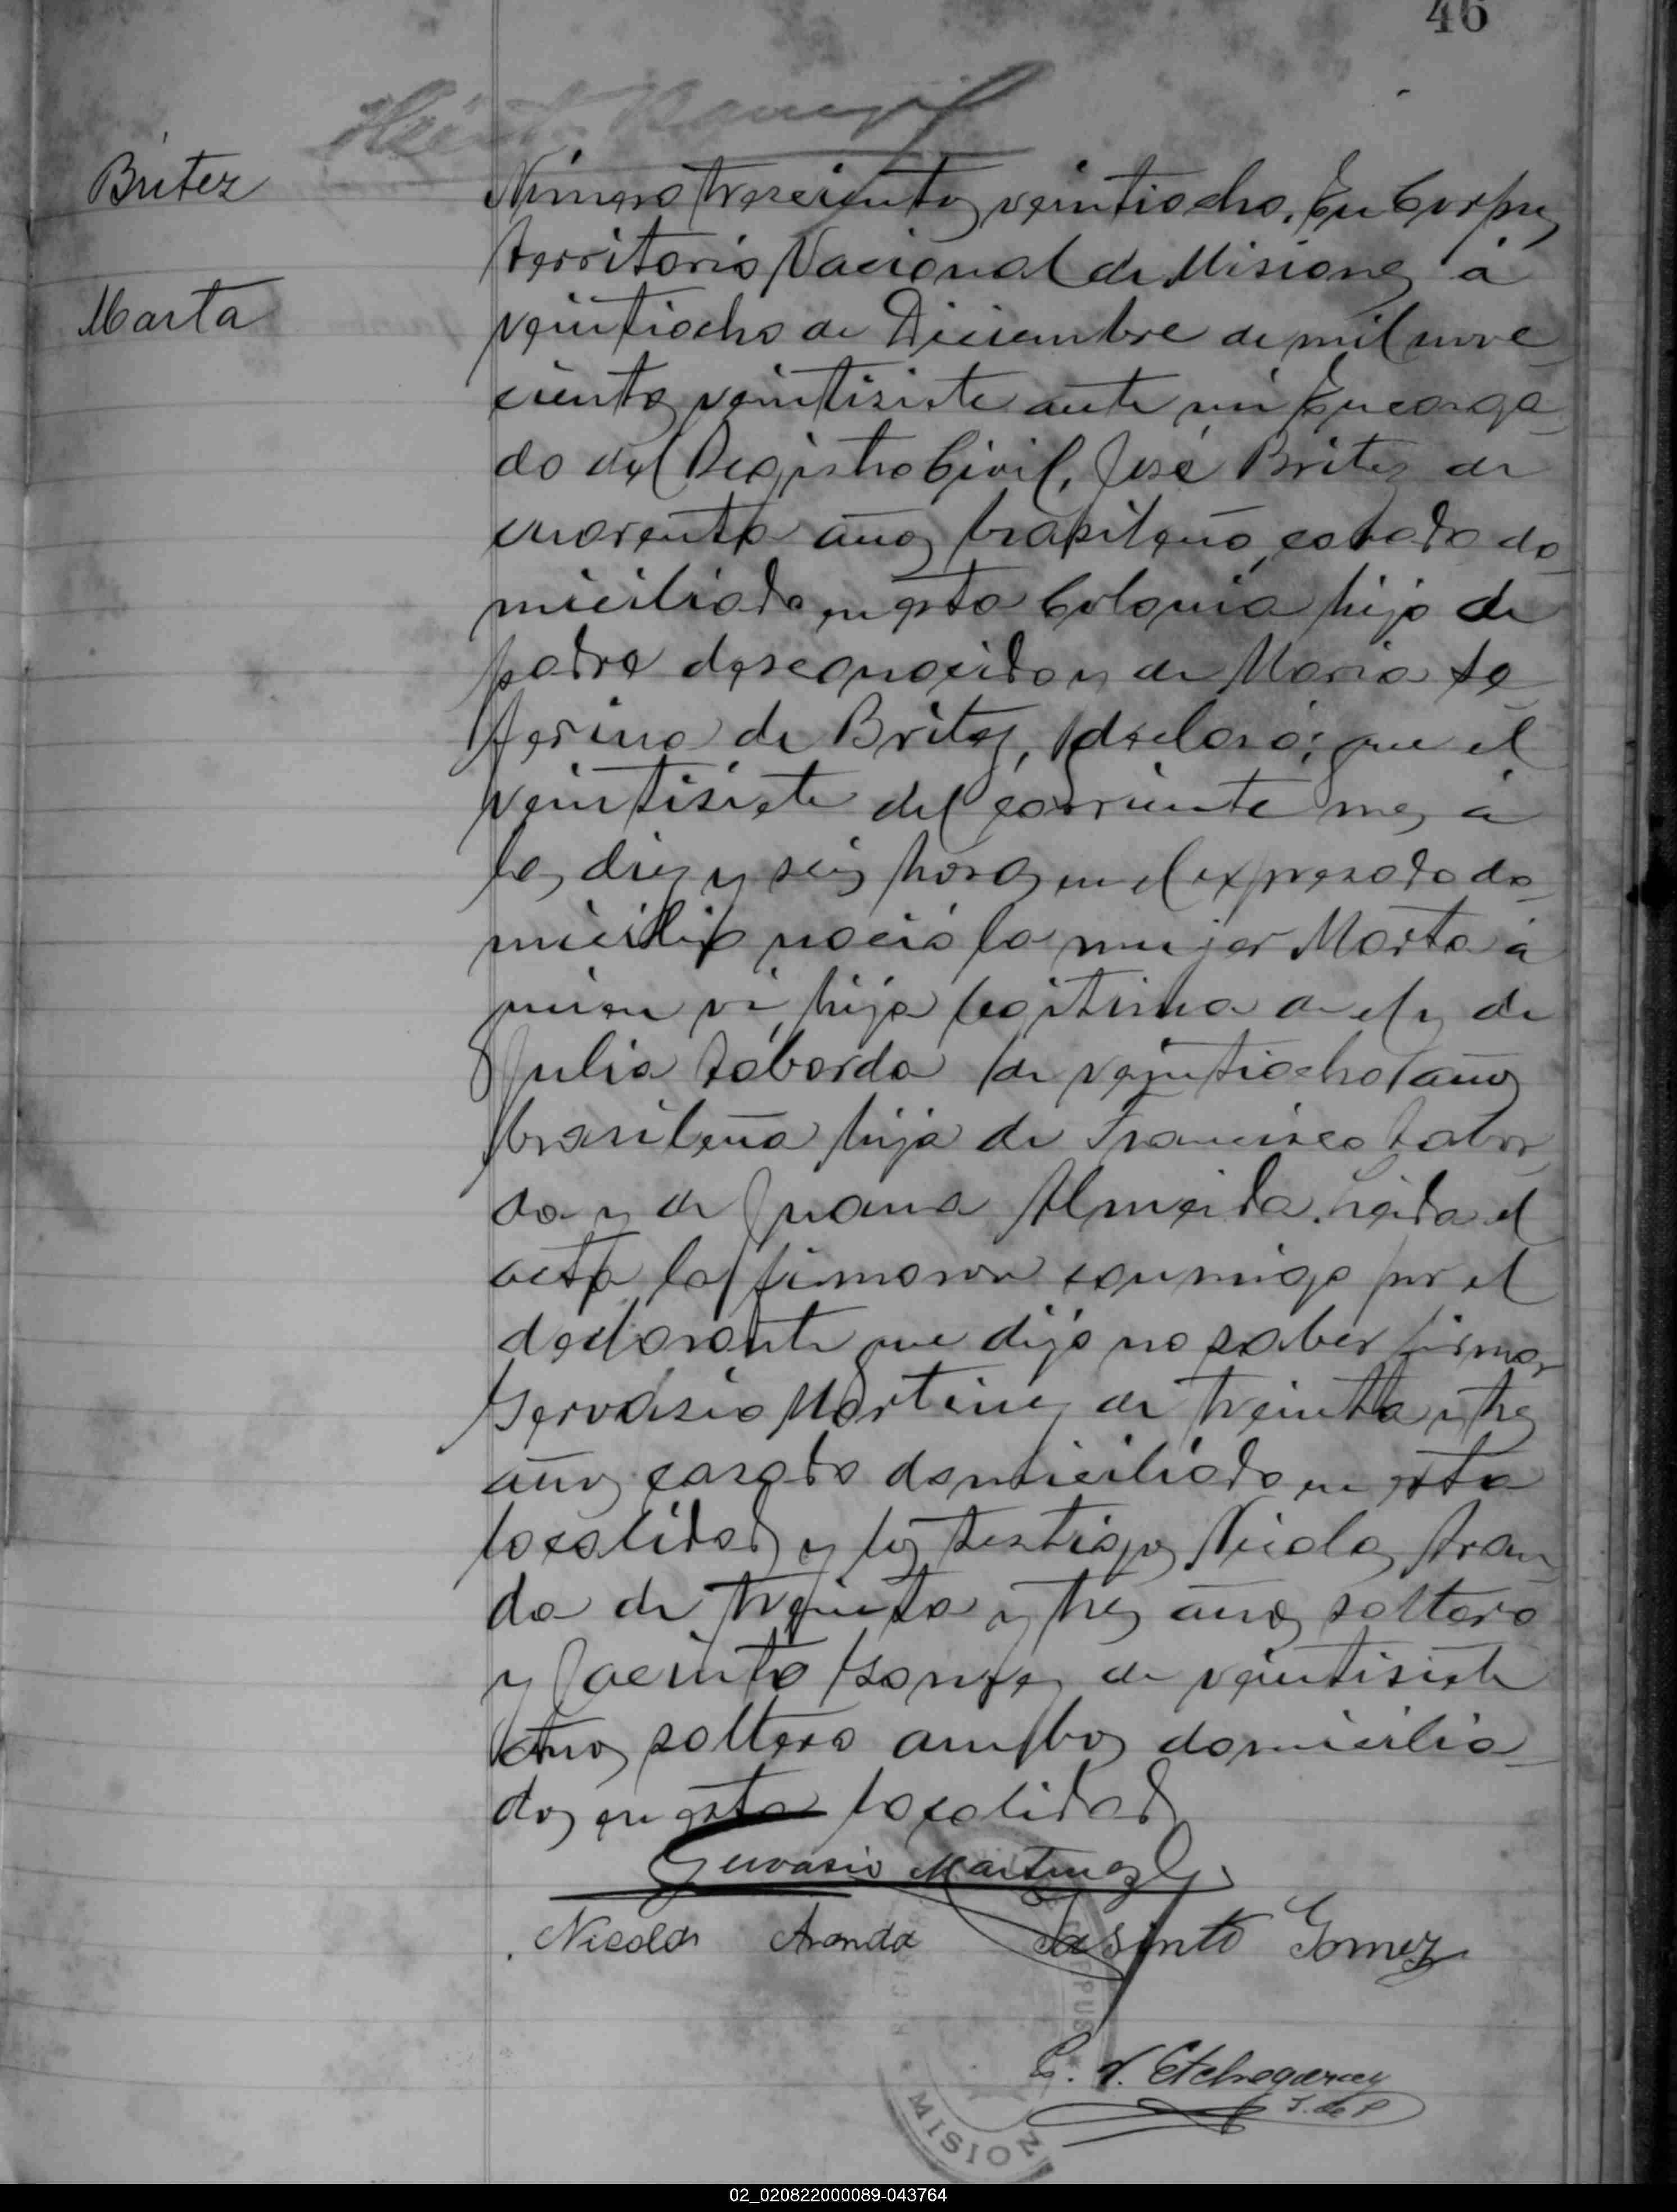 46
Britez
Marta
Número trescientos veintiocho. En Corpus
territorio Nacional de Misiones á
veintiocho de Diciembre de mil nove
cientos veintisiete ante mi Encarga
do del Registro Civil, José Britez de
cuarenta años brasileño, casado do
miciliado en esta Colonia hijo de
padre desconocido y de Maria
de Britez, declaró: que el
veintisiete del corriente mes á
las diez y seis horas en el expresado do
micilio nació la mujer Marta á
quien vi, hija legitima de el y de
Julia Taborda de veintiocho años
brasileña hija de Francisco Tabor
da y de Juana Almeida. Leida el
acta la firmaron conmigo por el
declarante que dijo no saber firmar
Gervasio Martinez de treinta y tres
años casado domiciliado en esta
localidad y los testigos Nicolas Aran
da de treinta y tres años soltero
y Jacinto Gomez de veintisiete
años soltero ambos domicilia
dos en esta localidad
Gervasio Martinez
Nicolas Aranda Jasinto Gomez
C. V. Etchegaray
J. de P
CORPUS
MISION
02_020822000089-043764